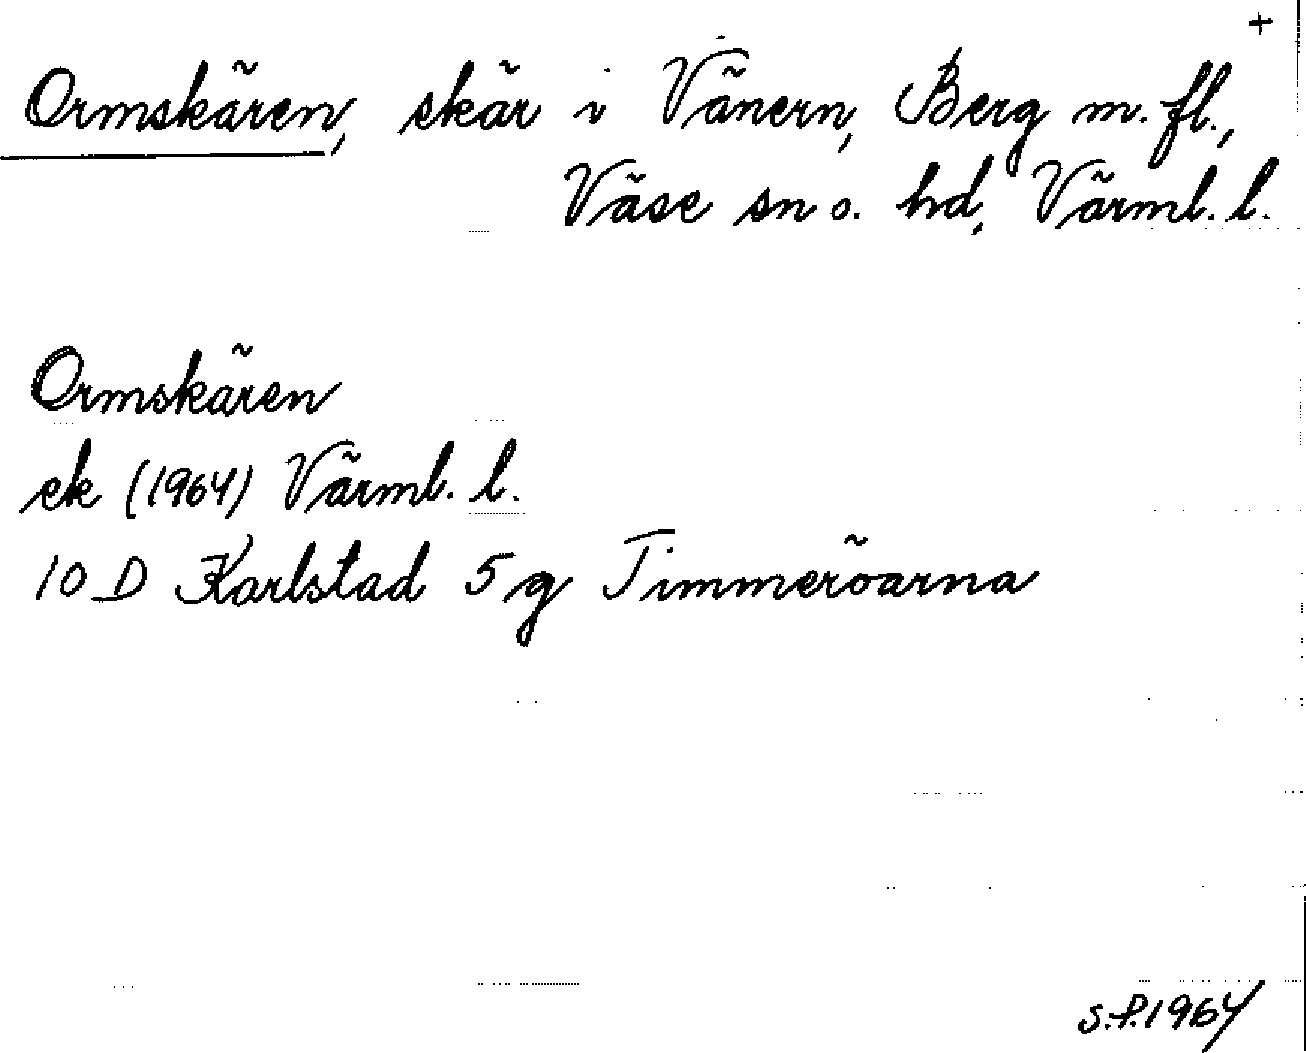 +
Ormskären, skär i Vänern, Berg m. fl.,
Väse sn o. hd, Värml. l.
Ormskären
ek (1964) Värml. l.
10 D Karlstad 5 g Timmeröarna
S.P. 1964